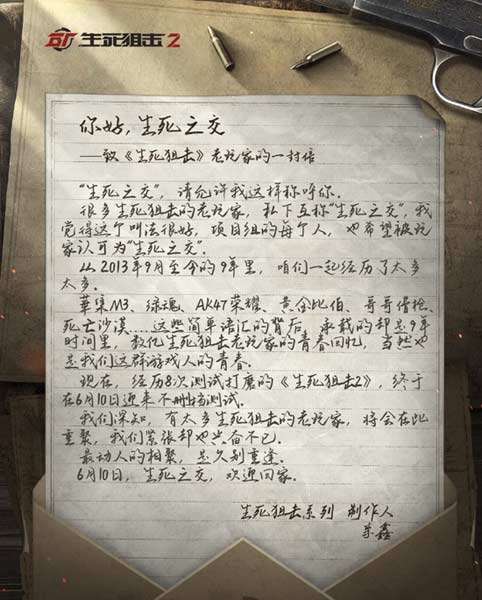 生死狙击2
你好,生死之交
——致《生死狙击》老玩家的一封信
"生死之交",请允许我这样称呼你.
很多生死狙击的老玩家,私下互称"生死之交",我
觉得这个叫法很好,项目组的每个人,也希望被玩
家认可为"生死之交".
从2013年9月至今的9年里,咱们一起经历了太多
太多.
华宋M3、绿魂、AK47荣耀、黄金比伯、哥哥借枪、
死亡沙漠……这些简单语汇的背后,承载的却是9年
时间里,数亿生死狙击老玩家的青春回忆,当然也
是我们这群游戏人的青春.
现在,经历8次测试打磨的《生死狙击2》,终于
在6月10日迎来不删档测试.
我们深知,有太多生死狙击的老玩家,将会在此
重聚,我们紧张却也兴奋不已.
最动人的相聚,是久别重逢.
6月10日,生死之交,欢迎回家.
生死狙击系列 制作人
鑫